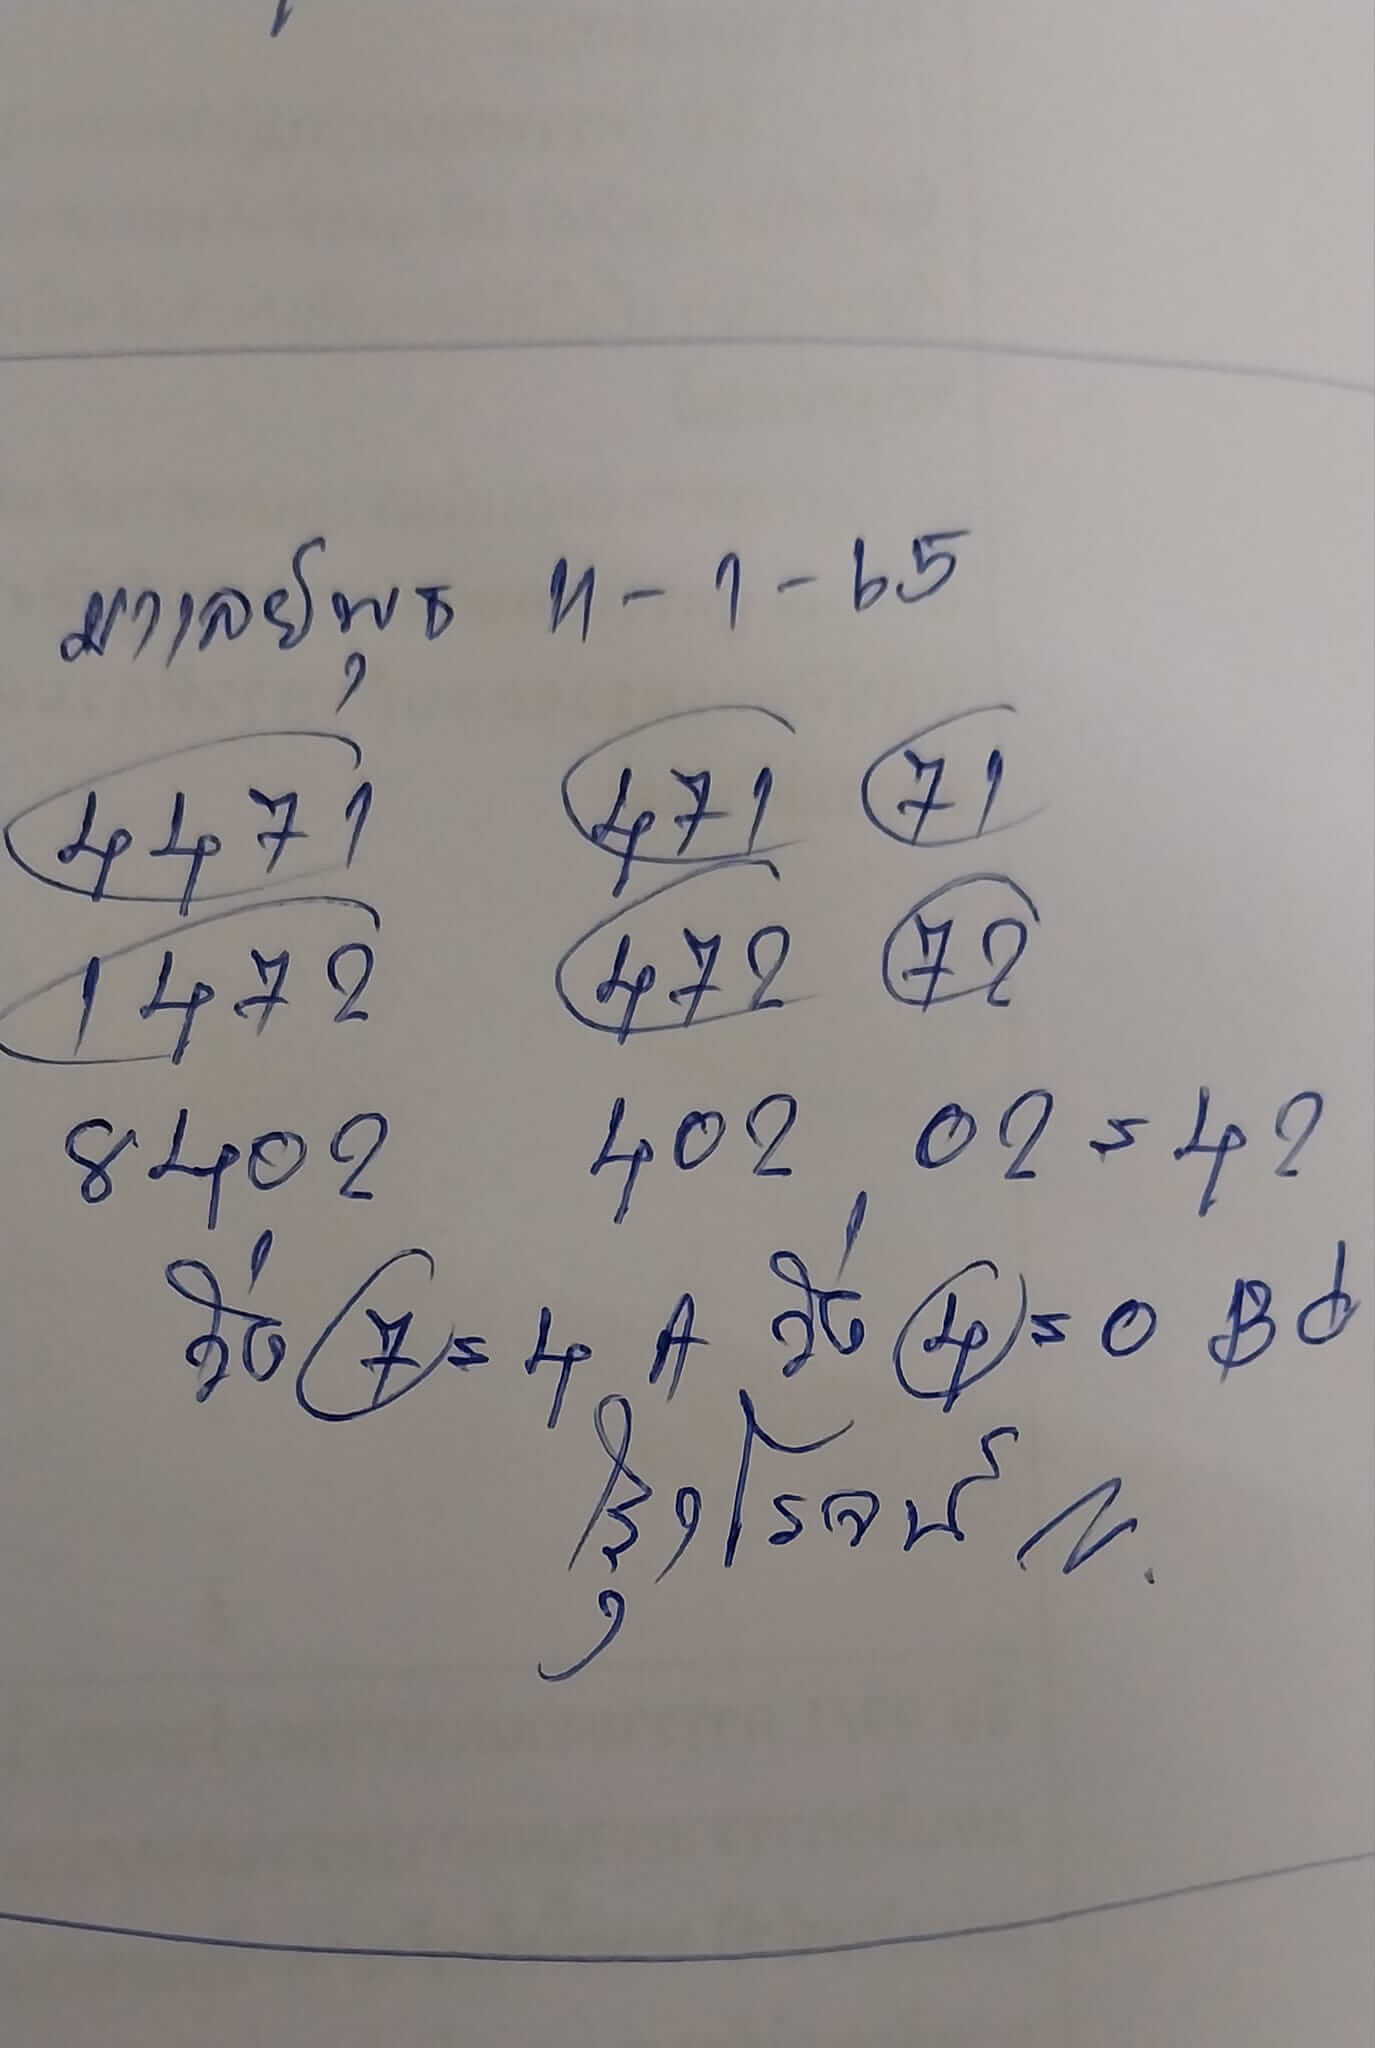 มาเลย์พุธ 11-1-65
4471 471 71
1472 472 72
8402 402 02=42
วิ่ง 7=4 A วิ่ง 4=0 B
รุ่งโรจน์ N.